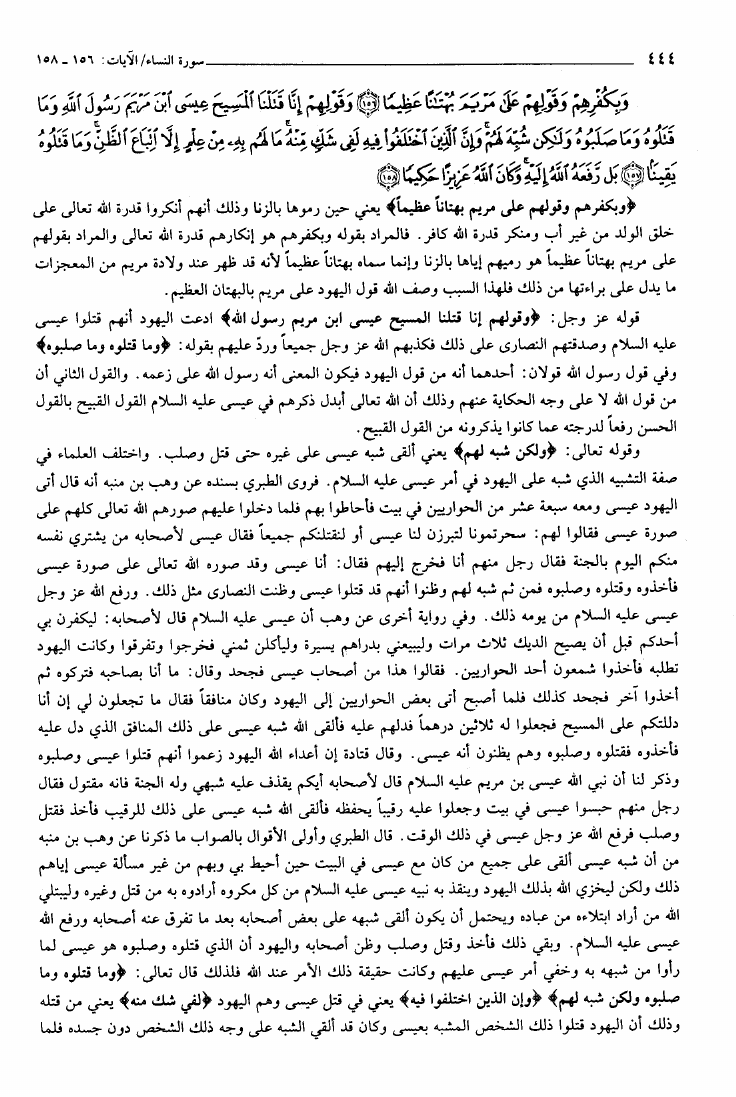 ٤٤٤ سورة النساء/ الآيات: ١٥٦ ـ ١٥٨
وَبِكُفْرِهِمْ وَقَوْلِهِمْ عَلَىٰ مَرْيَمَ بُهْتَٰنًا عَظِيمًا ﴿١٥٦﴾ وَقَوْلِهِمْ إِنَّا قَتَلْنَا ٱلْمَسِيحَ عِيسَى ٱبْنَ مَرْيَمَ رَسُولَ ٱللَّهِ وَمَا
قَتَلُوهُ وَمَا صَلَبُوهُ وَلَٰكِن شُبِّهَ لَهُمْ ۚ وَإِنَّ ٱلَّذِينَ ٱخْتَلَفُوا۟ فِيهِ لَفِى شَكٍّ مِّنْهُ ۚ مَا لَهُم بِهِۦ مِنْ عِلْمٍ إِلَّا ٱتِّبَاعَ ٱلظَّنِّ ۚ وَمَا قَتَلُوهُ
يَقِينًۢا ﴿١٥٧﴾ بَل رَّفَعَهُ ٱللَّهُ إِلَيْهِ ۚ وَكَانَ ٱللَّهُ عَزِيزًا حَكِيمًا ﴿١٥٨﴾
﴿وبكفرهم وقولهم على مريم بهتاناً عظيماً﴾ يعني حين رموها بالزنا وذلك أنهم أنكروا قدرة الله تعالى على
خلق الولد من غير أب ومنكر قدرة الله كافر. فالمراد بقوله وبكفرهم هو إنكارهم قدرة الله تعالى والمراد بقولهم
على مريم بهتاناً عظيماً هو رميهم إياها بالزنا وإنما سماه بهتاناً عظيماً لأنه قد ظهر عند ولادة مريم من المعجزات
ما يدل على براءتها من ذلك فلهذا السبب وصف الله قول اليهود على مريم بالبهتان العظيم.
قوله عز وجل: ﴿وقولهم إنا قتلنا المسيح عيسى ابن مريم رسول الله﴾ ادعت اليهود أنهم قتلوا عيسى
عليه السلام وصدقتهم النصارى على ذلك فكذبهم الله عز وجل جميعاً وردّ عليهم بقوله: ﴿وما قتلوه وما صلبوه﴾
وفي قول رسول الله قولان: أحدهما أنه من قول اليهود فيكون المعنى أنه رسول الله على زعمه. والقول الثاني أن
من قول الله لا على وجه الحكاية عنهم وذلك أن الله تعالى أبدل ذكرهم في عيسى عليه السلام القول القبيح بالقول
الحسن رفعاً لدرجته عما كانوا يذكرونه من القول القبيح.
وقوله تعالى: ﴿ولكن شبه لهم﴾ يعني ألقى شبه عيسى على غيره حتى قتل وصلب. واختلف العلماء في
صفة التشبيه الذي شبه على اليهود في أمر عيسى عليه السلام. فروى الطبري بسنده عن وهب بن منبه أنه قال أتى
اليهود عيسى ومعه سبعة عشر من الحواريين في بيت فأحاطوا بهم فلما دخلوا عليهم صورهم الله تعالى كلهم على
صورة عيسى فقالوا لهم: سحرتمونا لتبرزن لنا عيسى أو لنقتلنكم جميعاً فقال عيسى لأصحابه من يشتري نفسه
منكم اليوم بالجنة فقال رجل منهم أنا فخرج إليهم فقال: أنا عيسى وقد صوره الله تعالى على صورة عيسى
فأخذوه وقتلوه وصلبوه فمن ثم شبه لهم وظنوا أنهم قد قتلوا عيسى وظنت النصارى مثل ذلك. ورفع الله عز وجل
عيسى عليه السلام من يومه ذلك. وفي رواية أخرى عن وهب أن عيسى عليه السلام قال لأصحابه: ليكفرن بي
أحدكم قبل أن يصيح الديك ثلاث مرات وليبيعني بدراهم يسيرة وليأكلن ثمني فخرجوا وتفرقوا وكانت اليهود
تطلبه فأخذوا شمعون أحد الحواريين. فقالوا هذا من أصحاب عيسى فجحد وقال: ما أنا بصاحبه فتركوه ثم
أخذوا آخر فجحد كذلك فلما أصبح أتى بعض الحواريين إلى اليهود وكان منافقاً فقال ما تجعلون لي إن أنا
دللتكم على المسيح فجعلوا له ثلاثين درهماً فدلهم عليه فألقى الله شبه عيسى على ذلك المنافق الذي دل عليه
فأخذوه فقتلوه وصلبوه وهم يظنون أنه عيسى. وقال قتادة إن أعداء الله اليهود زعموا أنهم قتلوا عيسى وصلبوه
وذكر لنا أن نبي الله عيسى بن مريم عليه السلام قال لأصحابه أيكم يقذف عليه شبهي وله الجنة فانه مقتول فقال
رجل منهم حبسوا عيسى في بيت وجعلوا عليه رقيباً يحفظه فألقى الله شبه عيسى على ذلك للرقيب فأخذ فقتل
وصلب فرفع الله عز وجل عيسى في ذلك الوقت. قال الطبري وأولى الأقوال بالصواب ما ذكرنا عن وهب بن منبه
من أن شبه عيسى ألقى على جميع من كان مع عيسى في البيت حين أحيط بي وبهم من غير مسألة عيسى إياهم
ذلك ولكن ليخزي الله بذلك اليهود وينقذ به نبيه عيسى عليه السلام من كل مكروه أرادوه به من قتل وغيره وليبتلي
الله من أراد ابتلاءه من عباده ويحتمل أن يكون ألقى شبهه على بعض أصحابه بعد ما تفرق عنه أصحابه ورفع الله
عيسى عليه السلام. وبقي ذلك فأخذ وقتل وصلب وظن أصحابه واليهود أن الذي قتلوه وصلبوه هو عيسى لما
رأوا من شبهه به وخفي أمر عيسى عليهم وكانت حقيقة ذلك الأمر عند الله فلذلك قال تعالى: ﴿وما قتلوه وما
صلبوه ولكن شبه لهم﴾ ﴿وإن الذين اختلفوا فيه﴾ يعني في قتل عيسى وهم اليهود ﴿لفي شك منه﴾ يعني من قتله
وذلك أن اليهود قتلوا ذلك الشخص المشبه بعيسى وكان قد ألقي الشبه على وجه ذلك الشخص دون جسده فلما